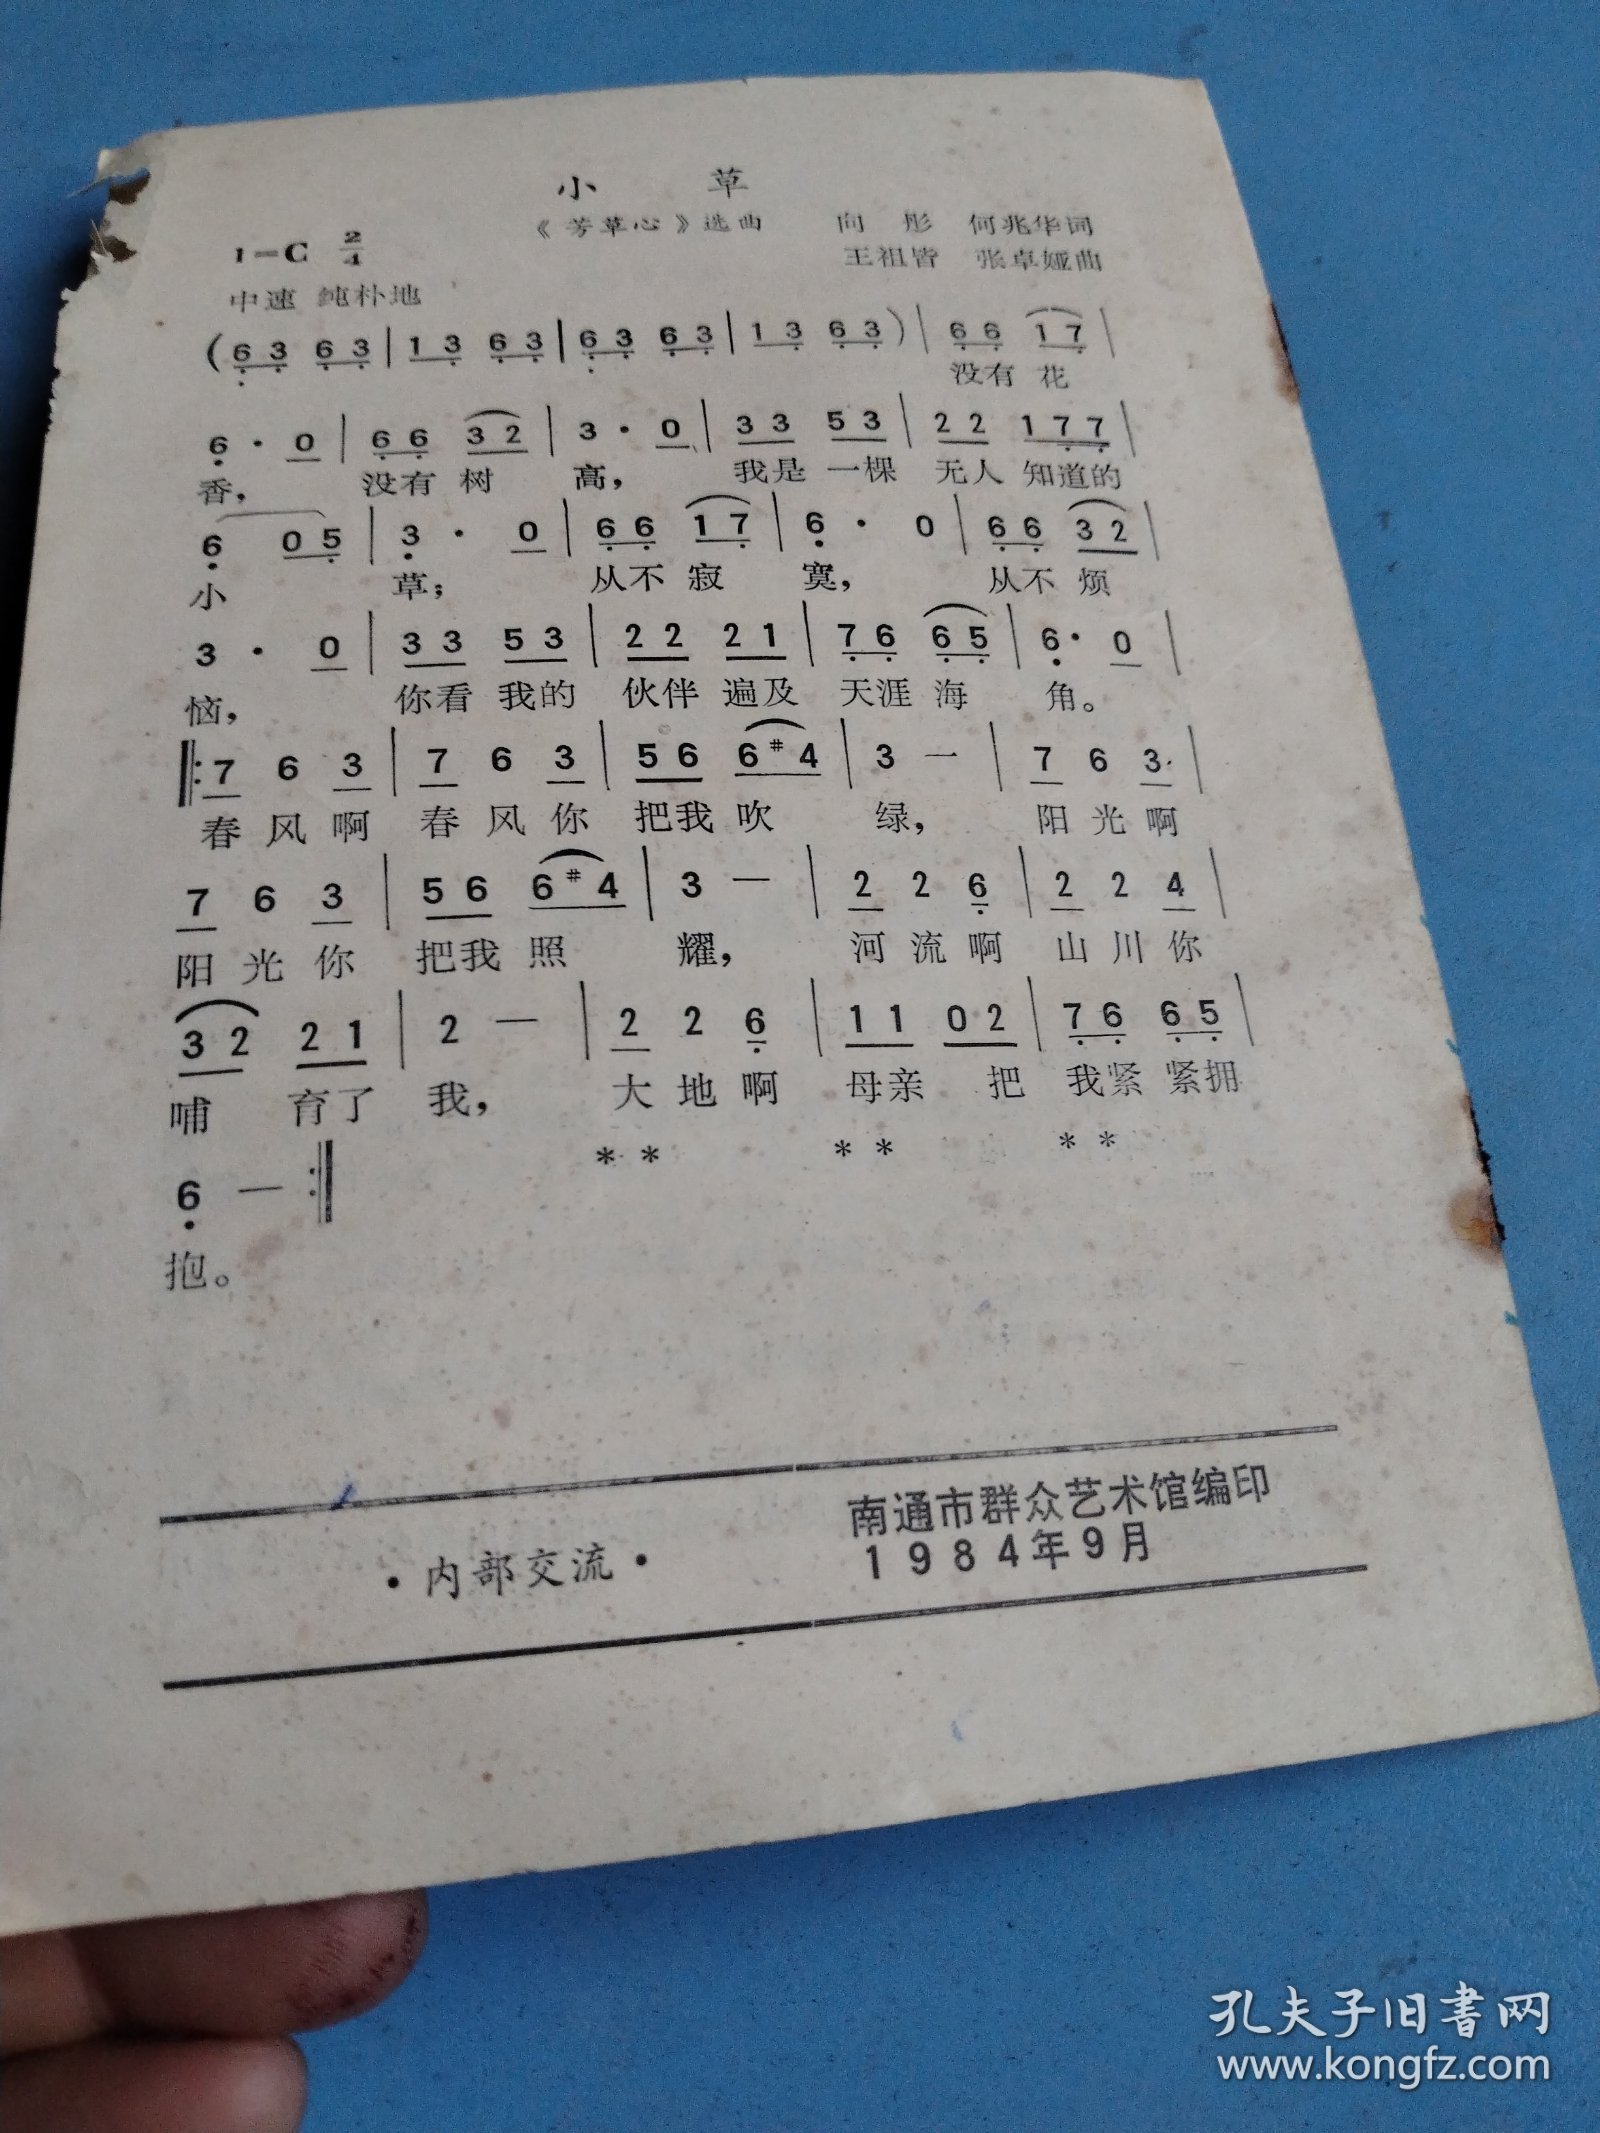 小 草
《芳草心》选曲 向 彤 何兆华词
1=C 2/4 王祖皆 张卓娅曲
中速 纯朴地
(6 3 6 3 | 1 3 6 3 | 6 3 6 3 | 1 3 6 3) | 6 6 1 7 |
没有 花
6 · 0 | 6 6 3 2 | 3 · 0 | 3 3 5 3 | 2 2 1 7 7 |
香， 没有 树 高， 我是 一棵 无人 知道的
6 0 5 | 3 · 0 | 6 6 1 7 | 6 · 0 | 6 6 3 2 |
小 草； 从不 寂 寞， 从不 烦
3 · 0 | 3 3 5 3 | 2 2 2 1 | 7 6 6 5 | 6 · 0 |
恼， 你看 我的 伙伴 遍及 天涯 海 角。
‖: 7 6 3 | 7 6 3 | 5 6 6 #4 | 3 — | 7 6 3 |
春 风 啊 春 风 你 把我 吹 绿， 阳 光 啊
7 6 3 | 5 6 6 #4 | 3 — | 2 2 6 | 2 2 4 |
阳 光 你 把我 照 耀， 河 流 啊 山 川 你
3 2 2 1 | 2 — | 2 2 6 | 1 1 0 2 | 7 6 6 5 |
哺 育了 我， 大 地 啊 母亲 把 我紧 紧拥
6 — :‖ * * * * * *
抱。
·内部交流· 南通市群众艺术馆编印
1984年9月
孔夫子旧书网
www.kongfz.com